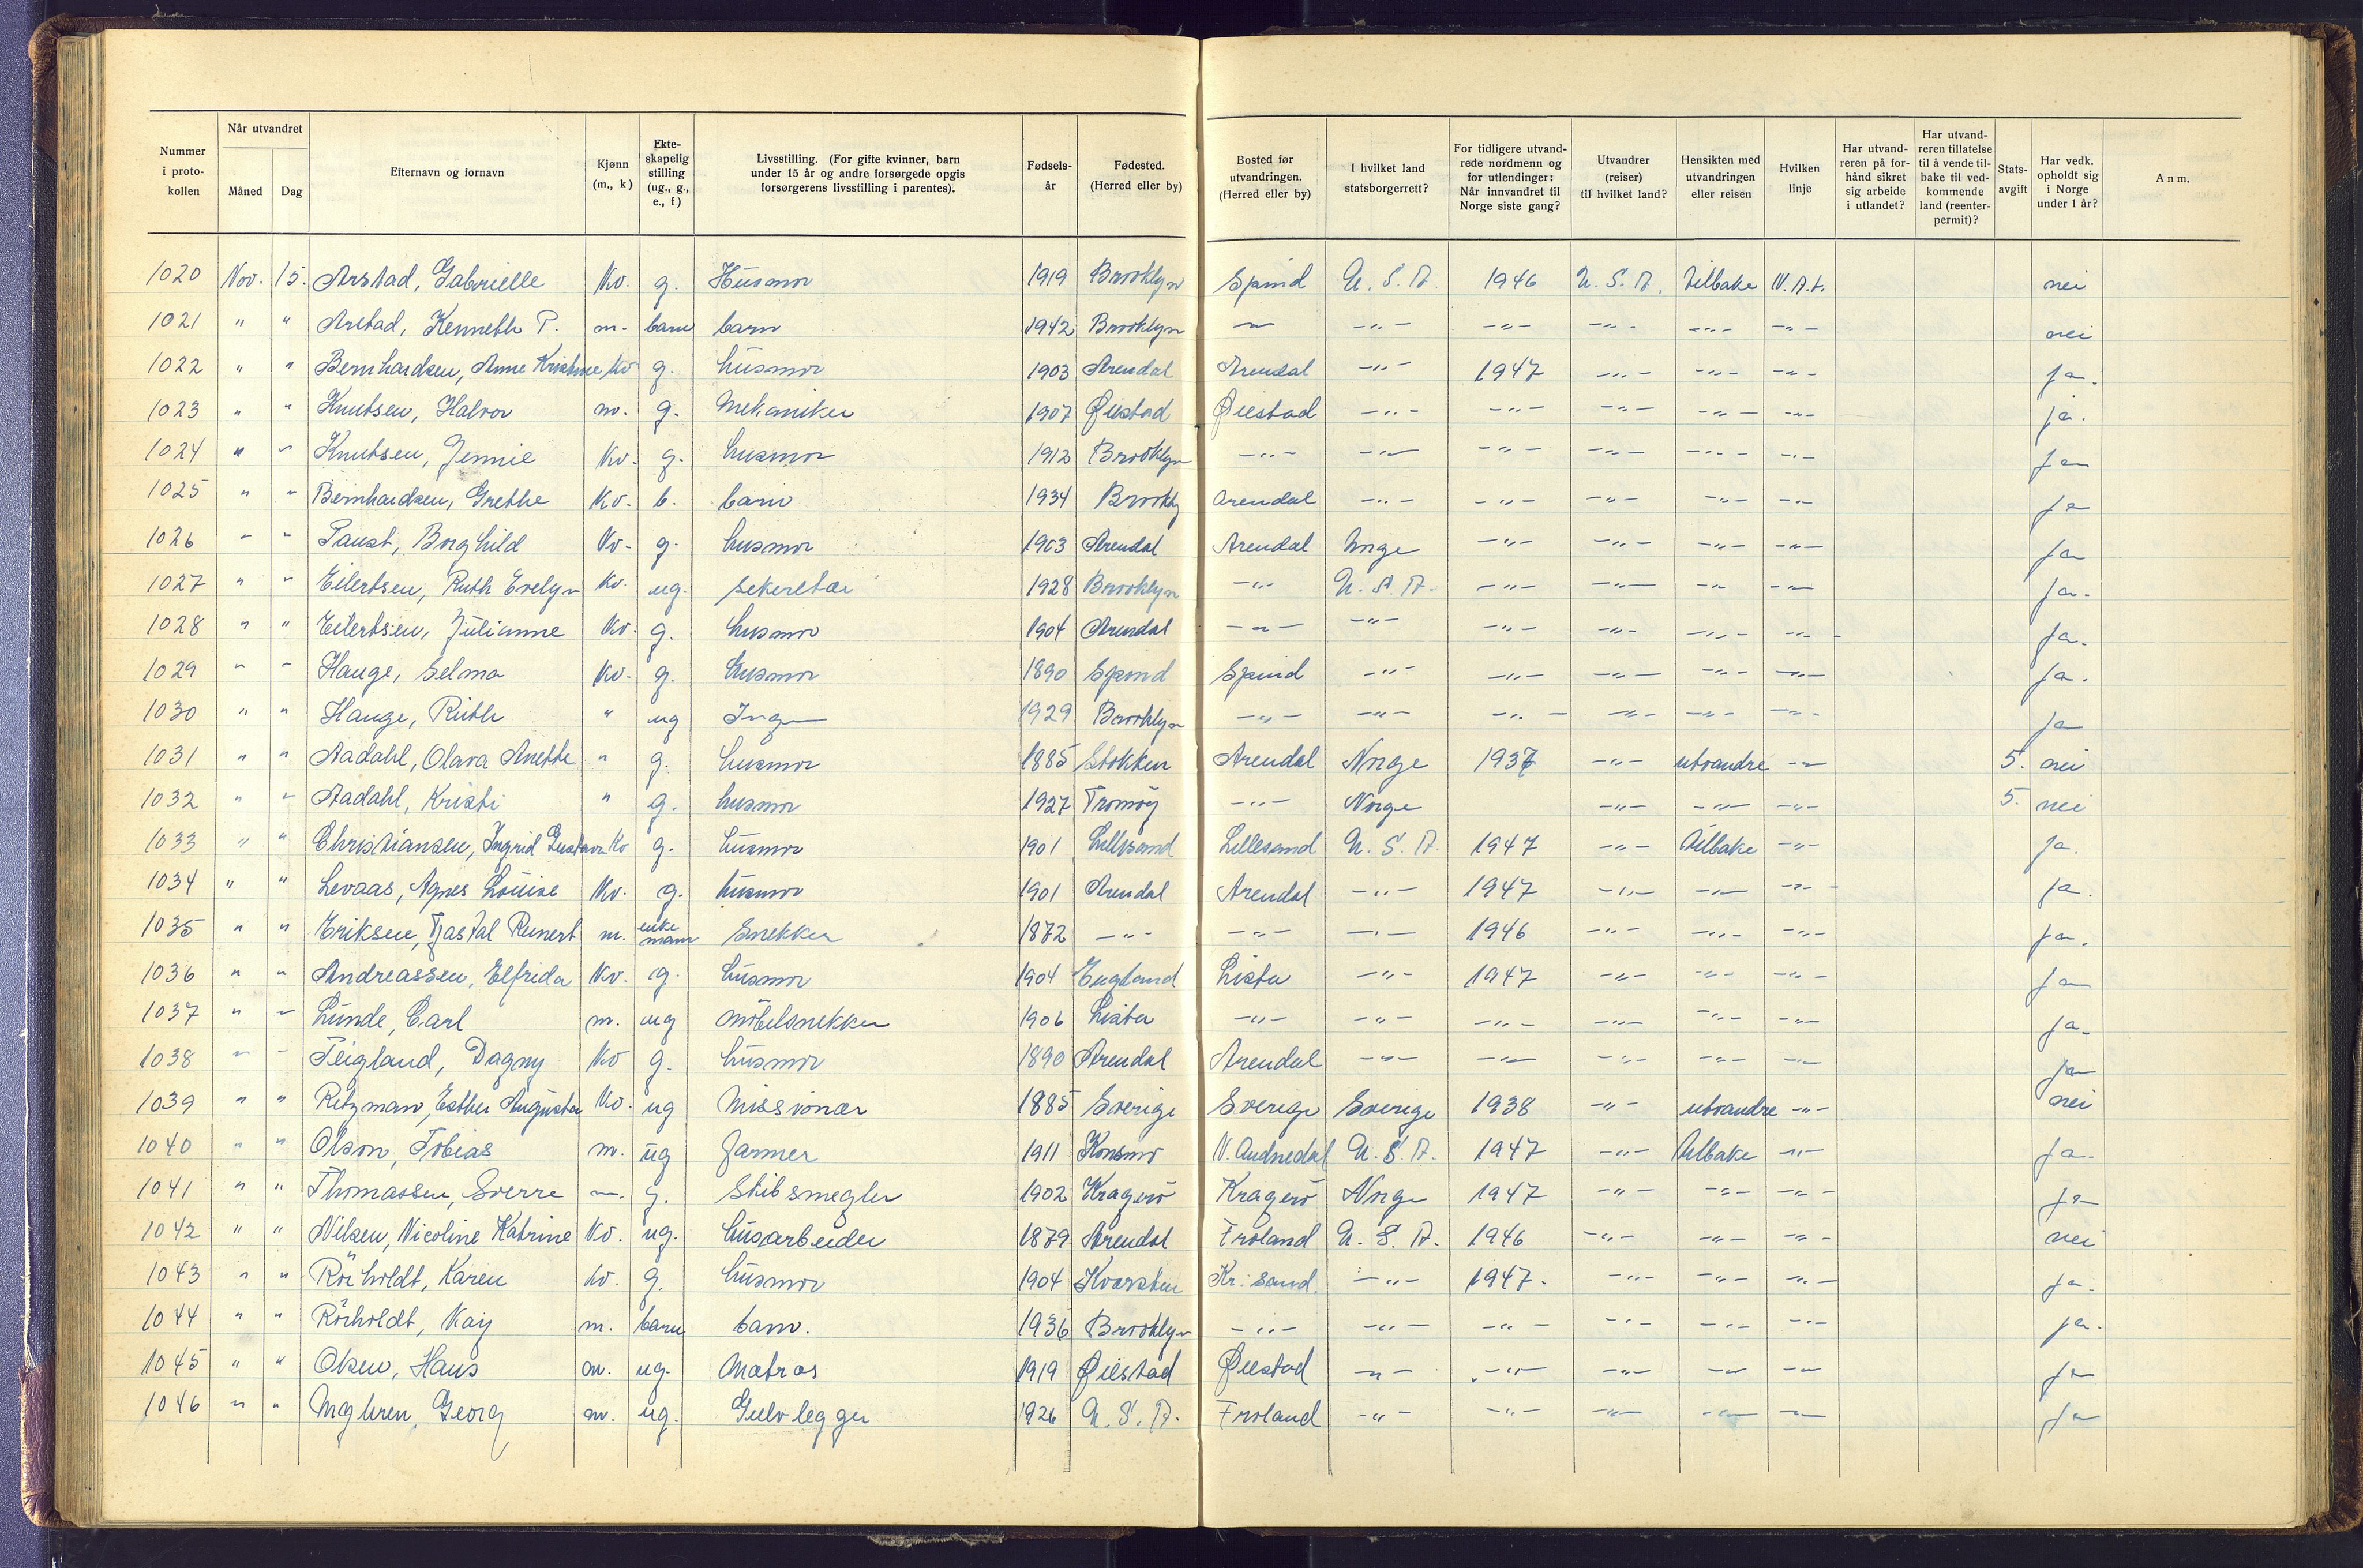 Nummer i protokollen | Når utvandret Måned | Dag | Efternavn og fornavn | Kjønn (m., k) | Ekteskapelig stilling (ug., g., e., f) | Livsstilling. (For gifte kvinner, barn under 15 år og andre forsørgede opgis forsørgerens livsstilling i parentes). | Fødselsår | Fødested. (Herred eller by) | Bosted før utvandringen. (Herred eller by) | I hvilket land statsborgerrett? | For tidligere utvandrede nordmenn og for utlendinger: Når innvandret til Norge siste gang? | Utvandrer (reiser) til hvilket land? | Hensikten med utvandringen eller reisen | Hvilken linje | Har utvandreren på forhånd sikret sig arbeide i utlandet? | Har utvandreren tillatelse til å vende tilbake til vedkommende land (reenterpermit)? | Statsavgift | Har vedk. opholdt sig i Norge under 1 år? | Anm.
1020 Nov. 15. Arstad, Gabrielle Kv. g. Husmor 1919 Brooklyn Spind U.S.A. 1946 U.S.A. tilbake N.A.L. nei
1021 " " Arstad, Kenneth P. m. barn barn 1942 Brooklyn -"- -"- -"- -"- -"- -"- nei
1022 " " Bernhardsen, Anne Kristine kv g. husmor 1903 Arendal Arendal -"- 1947 -"- -"- -"- ja.
1023 " " Knutsen, Halvor m. g. Mekaniker 1907 Øiestad Øiestad -"- -"- -"- -"- -"- ja.
1024 " " Knutsen, Jennie Kv. g. husmor 1912 Brooklyn -"- -"- -"- -"- -"- -"- ja
1025 " " Bernhardsen, Grethe Kv. b. barn 1934 Brookly Arendal -"- -"- -"- -"- -"- ja
1026 " " Paust, Borghild Kv. g. husmor 1903 Arendal Arendal Norge -"- -"- -"- -"- ja
1027 " " Eilertsen, Ruth Evelyn Kv. ug. sekretær 1928 Brooklyn -"- U.S.A. -"- -"- -"- -"- ja.
1028 " " Eilertsen, Julianne Kv. g. husmor 1904 Arendal -"- -"- -"- -"- -"- -"- ja.
1029 " " Hauge, Selma Kv. g. husmor 1890 Spind Spind -"- -"- -"- -"- -"- ja.
1030 " " Hauge, Ruth " ug Ingen 1929 Brooklyn -"- -"- -"- -"- -"- -"- ja
1031 " " Aadahl, Olava Anette " g. husmor 1885 Stokken Arendal Norge 1937 -"- utvandre -"- 5. nei
1032 " " Aadahl, Kristi " g. husmor 1927 Tromøy -"- Norge -"- -"- -"- 5. nei
1033 " " Christiansen, Ingrid Kv g. husmor 1901 Lillesand Lillesand U.S.A. 1947 -"- tilbake -"- ja.
1034 " " Levaas, Agnes Louise Kv. g. husmor 1901 Arendal Arendal -"- 1947 -"- -"- -"- ja.
1035 " " Eriksen, m. enke mann Snekker 1872 -"- -"- -"- 1946 -"- -"- -"- ja.
1036 " " Andreassen, Elfrida Kv. g. husmor 1904 England Lista -"- 1947 -"- -"- -"- ja
1037 " " Lunde, Carl m. ug møbelsnekker 1906 Lista -"- -"- -"- -"- -"- -"- ja.
1038 " " Teigland, Dagny Kv g. husmor 1890 Arendal Arendal -"- -"- -"- -"- -"- ja
1039 " " Ritzman, Esther Augusta Kv. ug Missionær 1885 Sverige Sverige Sverige 1938 -"- utvandre -"- nei
1040 " " Olson, Tobias m. ug farmer 1911 Konsmo N. Audnedal U.S.A. 1947 -"- tilbake -"- ja.
1041 " " Thomassen, Sverre m. g. Skibsmegler 1902 Kragerø Kragerø Norge 1947 -"- -"- -"- ja
1042 " " Nilsen, Nicoline Katrine Kv. ug. husarbeider 1879 Arendal Froland U.S.A. 1946 -"- -"- -"- nei
1043 " " Rørholdt, Karen kv. g. husmor 1904 Kr. sand. -"- 1947. -"- -"- -"- ja.
1044 " " Rørholdt, Kay m. barn barn. 1936 Brooklyn -"- -"- -"- -"- -"- -"- ja.
1045 " " Olsen, Hans m. ug. Matros 1919 Øiestad Øiestad -"- -"- -"- -"- -"- ja
1046 " " Myhren, Georg m. ug. Gulvlegger 1926 U.S.A. Froland -"- -"- -"- -"- -"- ja